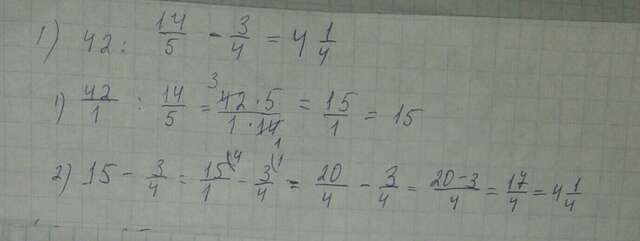 1) 42 : 14/5 - 3/4 = 4 1/4
1) 42/1 : 14/5 = 42·5/1·14 = 15/1 = 15
2) 15 - 3/4 = 15/1 - 3/4 = 20/4 - 3/4 = 20-3/4 = 17/4 = 4 1/4